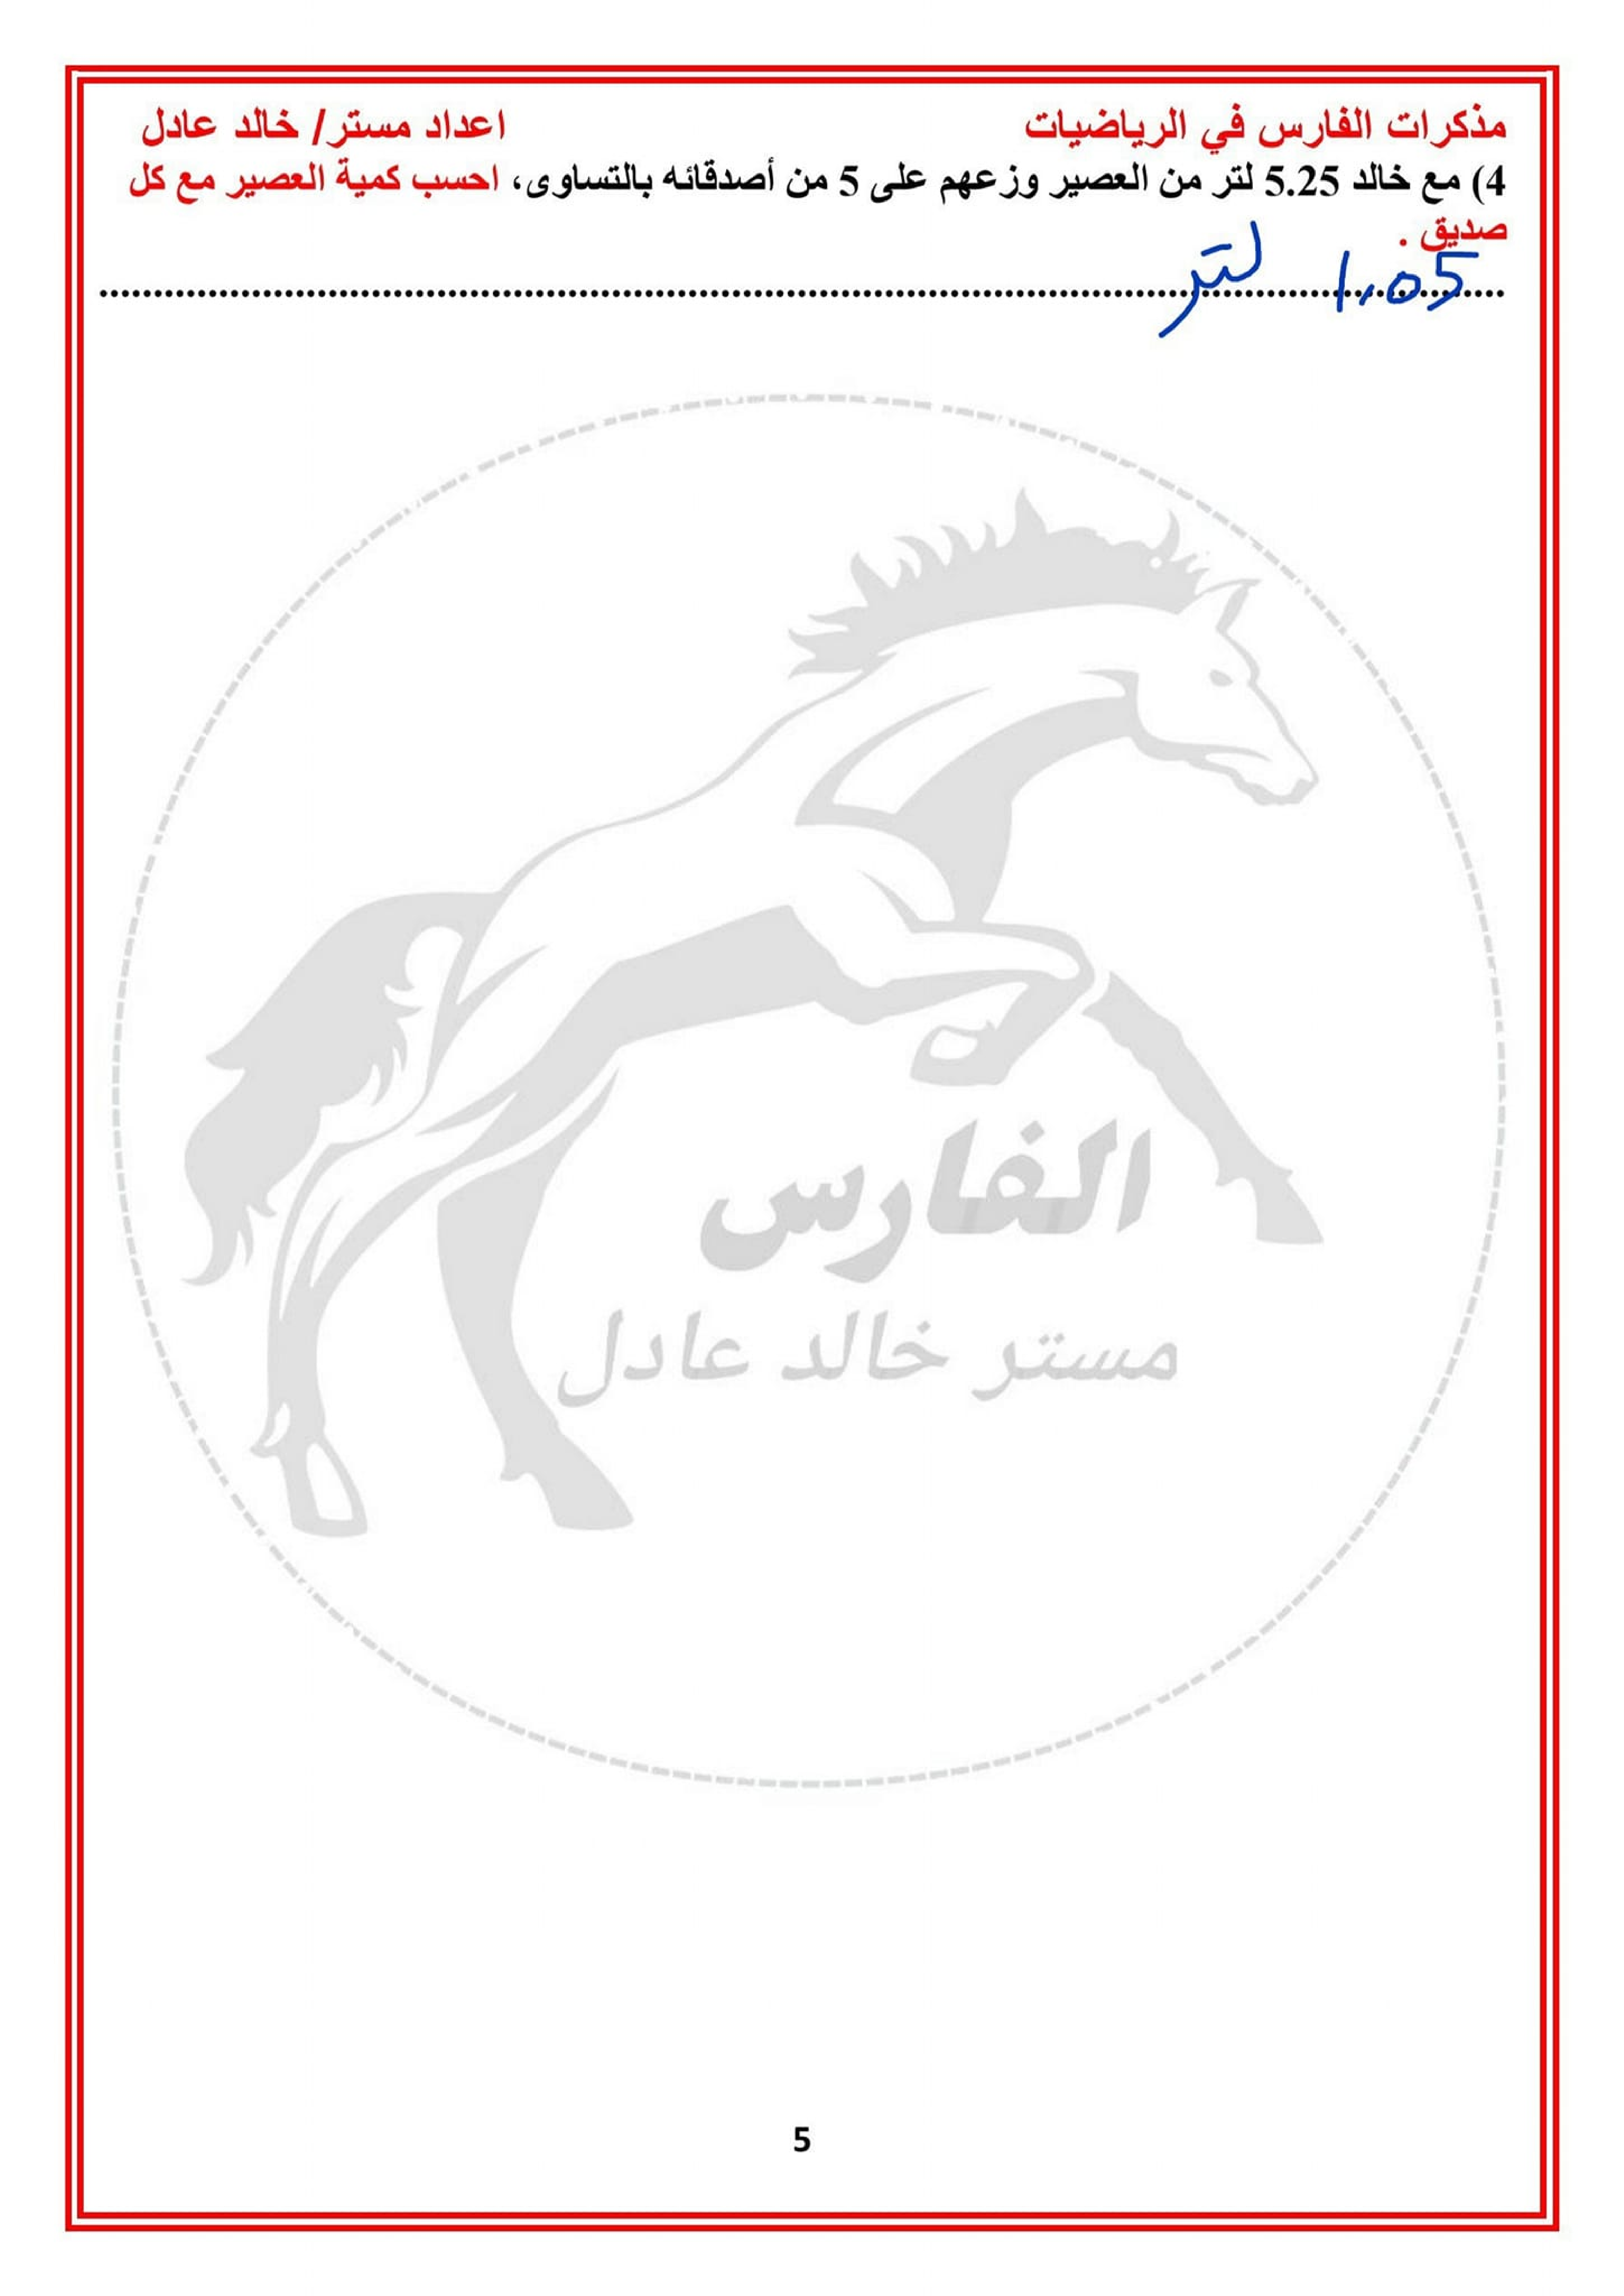 مذكرات الفارس في الرياضيات اعداد مستر/ خالد عادل
4) مع خالد 5.25 لتر من العصير وزعهم على 5 من أصدقائه بالتساوى، احسب كمية العصير مع كل
صديق .
1.05 لتر
الفارس
مستر خالد عادل
5